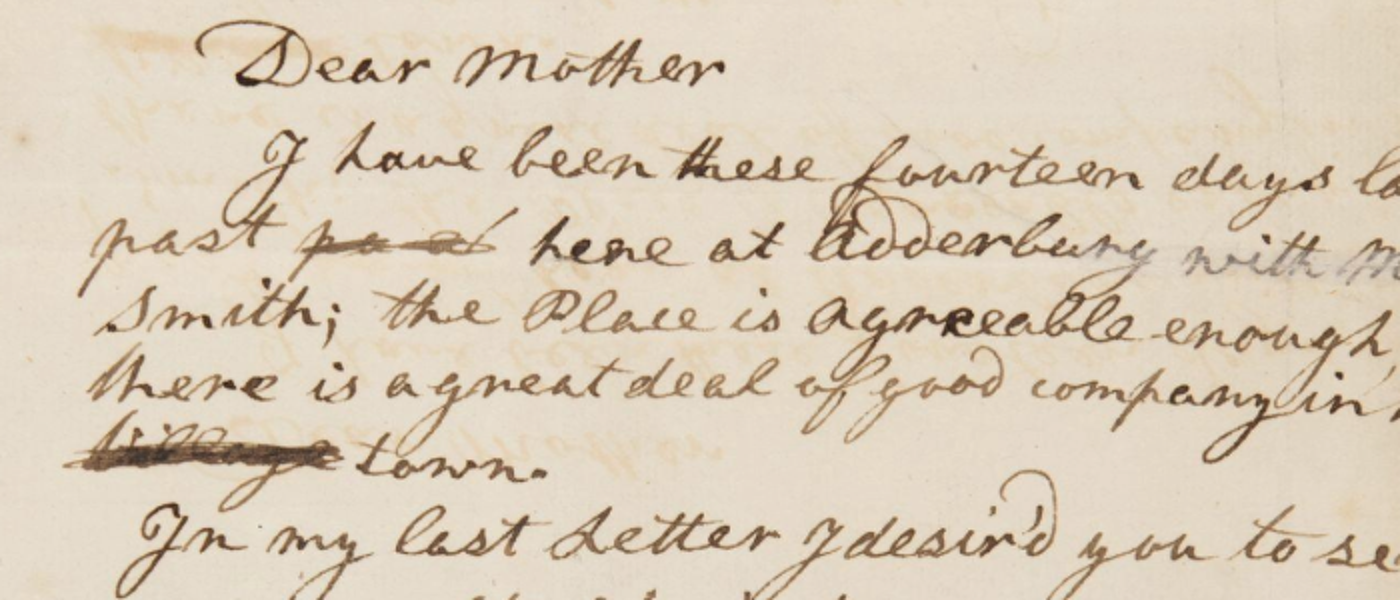 Dear Mother
I have been these fourteen days
past here at Adderbury with
Smith; the Place is agreeable enough,
there is a great deal of good company in
village town.
In my last Letter I desir'd you to